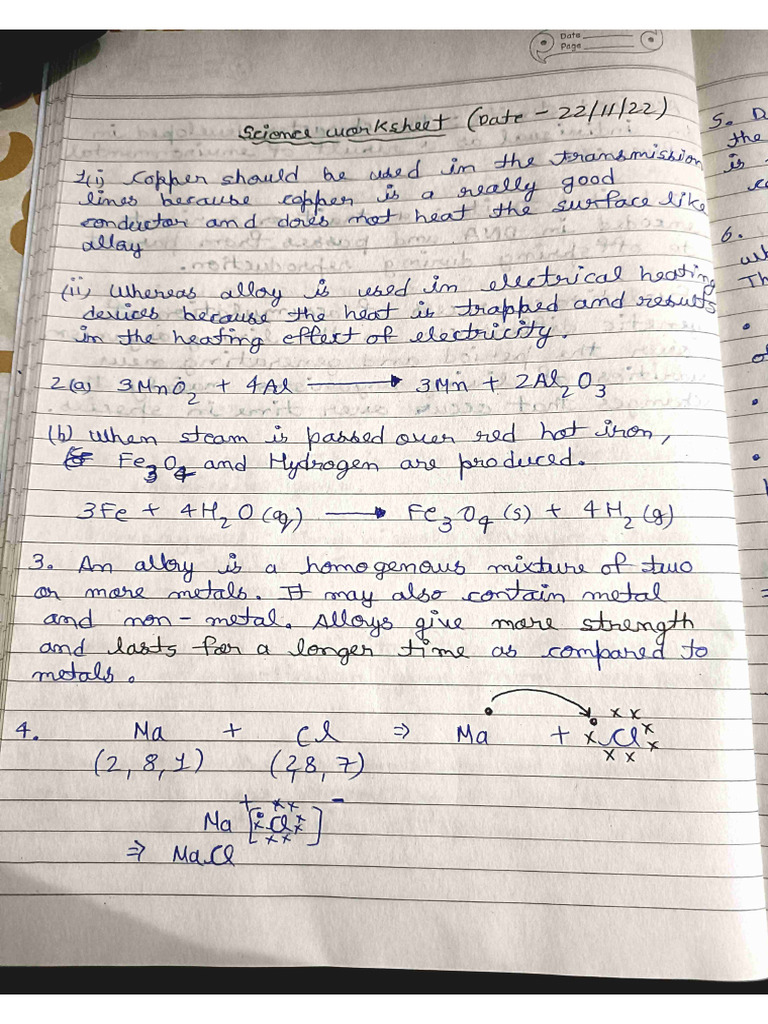 Date
Page
Science worksheet (Date - 22/11/22)
1(i) Copper should be used in the transmission
lines because copper is a really good
conductor and does not heat the surface like
allay
(ii) Whereas alloy is used in electrical heating
devices because the heat is trapped and results
in the heating effect of electricity.
2(a) 3MnO2 + 4Al ⟶ 3Mn + 2Al2O3
(b) When steam is passed over red hot iron,
Fe3O4 and Hydrogen are produced.
3Fe + 4H2O(aq) ⟶ Fe3O4(s) + 4H2(g)
3. An alloy is a homogenous mixture of two
or more metals. It may also contain metal
and non-metal. Alloys give more strength
and lasts for a longer time as compared to
metals.
4. Na + Cl ⇒ Na + Cl
(2, 8, 1) (2,8, 7)
Na+ [Cl]-
⇒ NaCl
5. D
the
is
6.
wh
Th